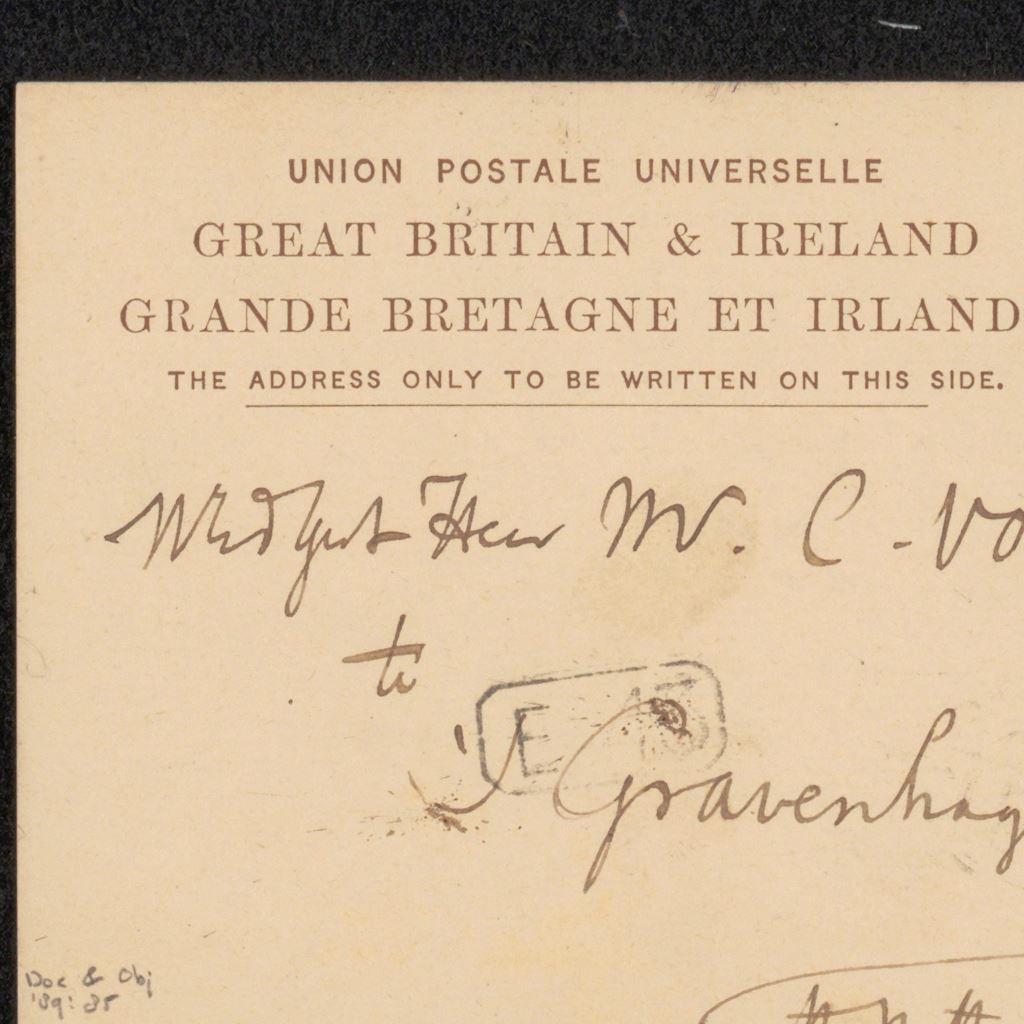 UNION POSTALE UNIVERSELLE
GREAT BRITAIN & IRELAND
GRANDE BRETAGNE ET IRLAND
THE ADDRESS ONLY TO BE WRITTEN ON THIS SIDE.
WEdGest Heer Mr. C. Vo
te
's Gravenhag
E
Doc & Obj
'89: 85